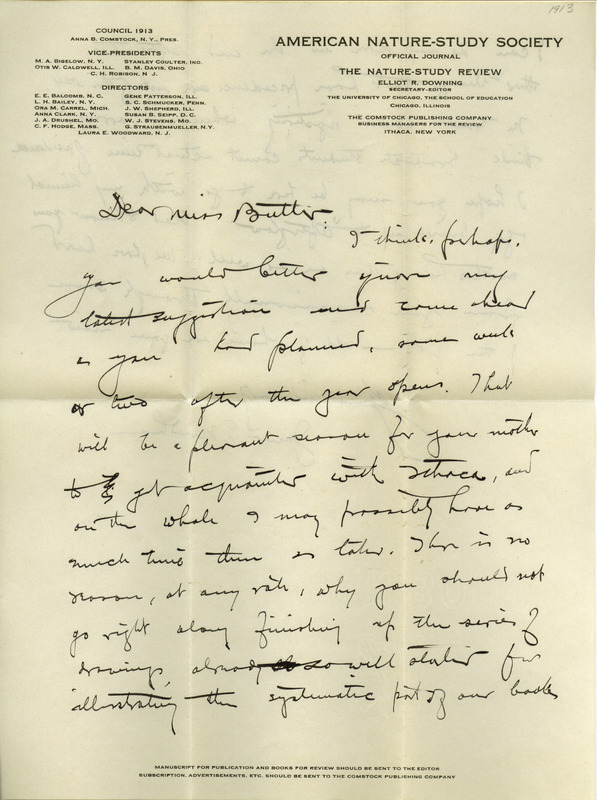 1913
COUNCIL 1913
ANNA B. COMSTOCK, N. Y., PRES.
VICE-PRESIDENTS
M. A. BIGELOW, N. Y. STANLEY COULTER, IND.
OTIS W. CALDWELL, ILL. B. M. DAVIS, OHIO
C. H. ROBISON, N J.
DIRECTORS
E. E. BALCOMB, N. C. GENE PATTERSON, ILL.
L. H. BAILEY, N. Y. S. C. SCHMUCKER, PENN.
ORA M. CARREL, MICH. J. W. SHEPHERD, ILL.
ANNA CLARK, N. Y. SUSAN B. SEIPP, D. C.
J. A. DRUSHEL, MO. W. J. STEVENS, MO.
C. F. HODGE, MASS. G. STRAUBENMUELLER, N.Y.
LAURA E. WOODWARD, N. J.
AMERICAN NATURE-STUDY SOCIETY
OFFICIAL JOURNAL
THE NATURE-STUDY REVIEW
ELLIOT R. DOWNING
SECRETARY-EDITOR
THE UNIVERSITY OF CHICAGO, THE SCHOOL OF EDUCATION
CHICAGO, ILLINOIS
THE COMSTOCK PUBLISHING COMPANY
BUSINESS MANAGERS FOR THE REVIEW
ITHACA, NEW YORK
Dear Miss Butler:
I think, perhaps,
you would better ignore my
latest suggestion and come ahead
as you had planned, some week
or two after the year opens. That
will be a pleasant season for your mother
to get acquainted with Ithaca, and
on the whole I may possibly have as
much time then as later. There is no
reason, at any rate, why you should not
go right along finishing up the series of
drawings, already so well started for
illustrating the systematic part of our books
MANUSCRIPT FOR PUBLICATION AND BOOKS FOR REVIEW SHOULD BE SENT TO THE EDITOR
SUBSCRIPTION, ADVERTISEMENTS, ETC. SHOULD BE SENT TO THE COMSTOCK PUBLISHING COMPANY